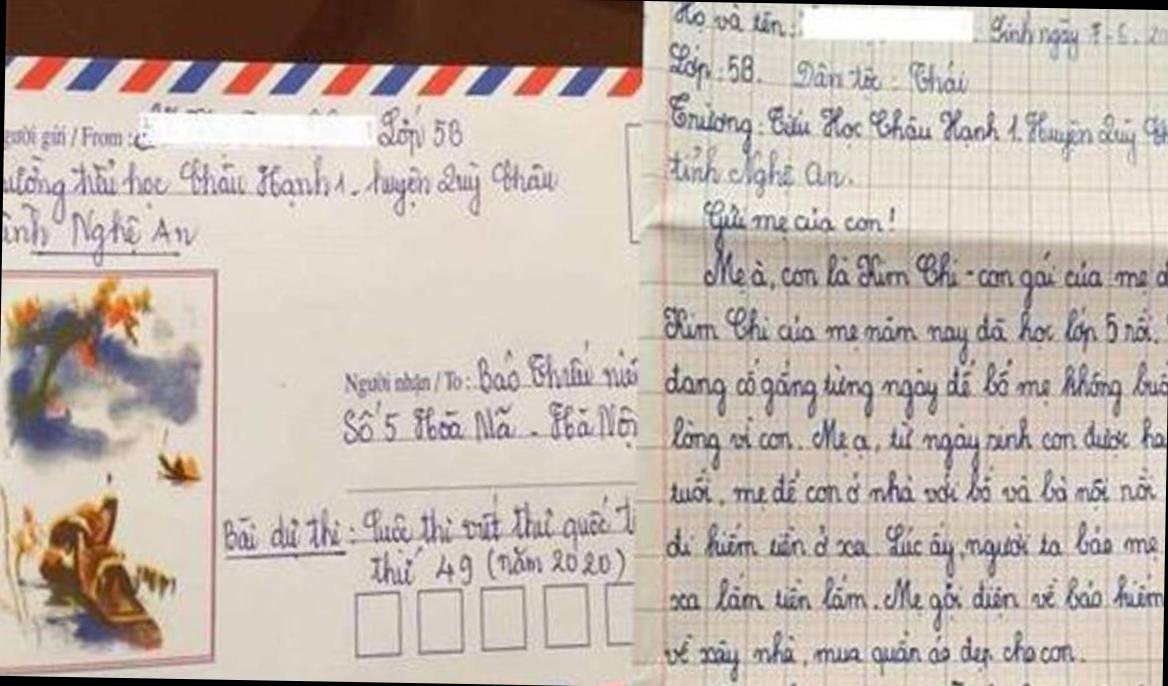 Người gửi / From : Lớp 5B
Trường tiểu học Châu Hạnh 1 - huyện Quỳ Châu
tỉnh Nghệ An
Người nhận / To : Báo Thiếu niên
Số 5 Hoà Mã - Hà Nội
Bài dự thi : Cuộc thi viết thư quốc tế
thứ 49 (năm 2020)
Họ và tên : Sinh ngày 7-6. 20
Lớp : 5B. Dân tộc : Thái
Trường : Tiểu Học Châu Hạnh 1. Huyện Quỳ Ch
tỉnh Nghệ An.
Gửi mẹ của con!
Mẹ à, con là Kim Chi - con gái của mẹ đ
Kim Chi của mẹ năm nay đã học lớp 5 rồi.
đang cố gắng từng ngày để bố mẹ không buồ
lòng vì con. Mẹ ạ, từ ngày sinh con được ha
tuổi, mẹ để con ở nhà với bố và bà nội rồi
đi kiếm tiền ở xa. Lúc ấy, người ta bảo mẹ
xa lắm tiền lắm. Mẹ gọi điện về bảo kiếm
về xây nhà, mua quần áo đẹp cho con.